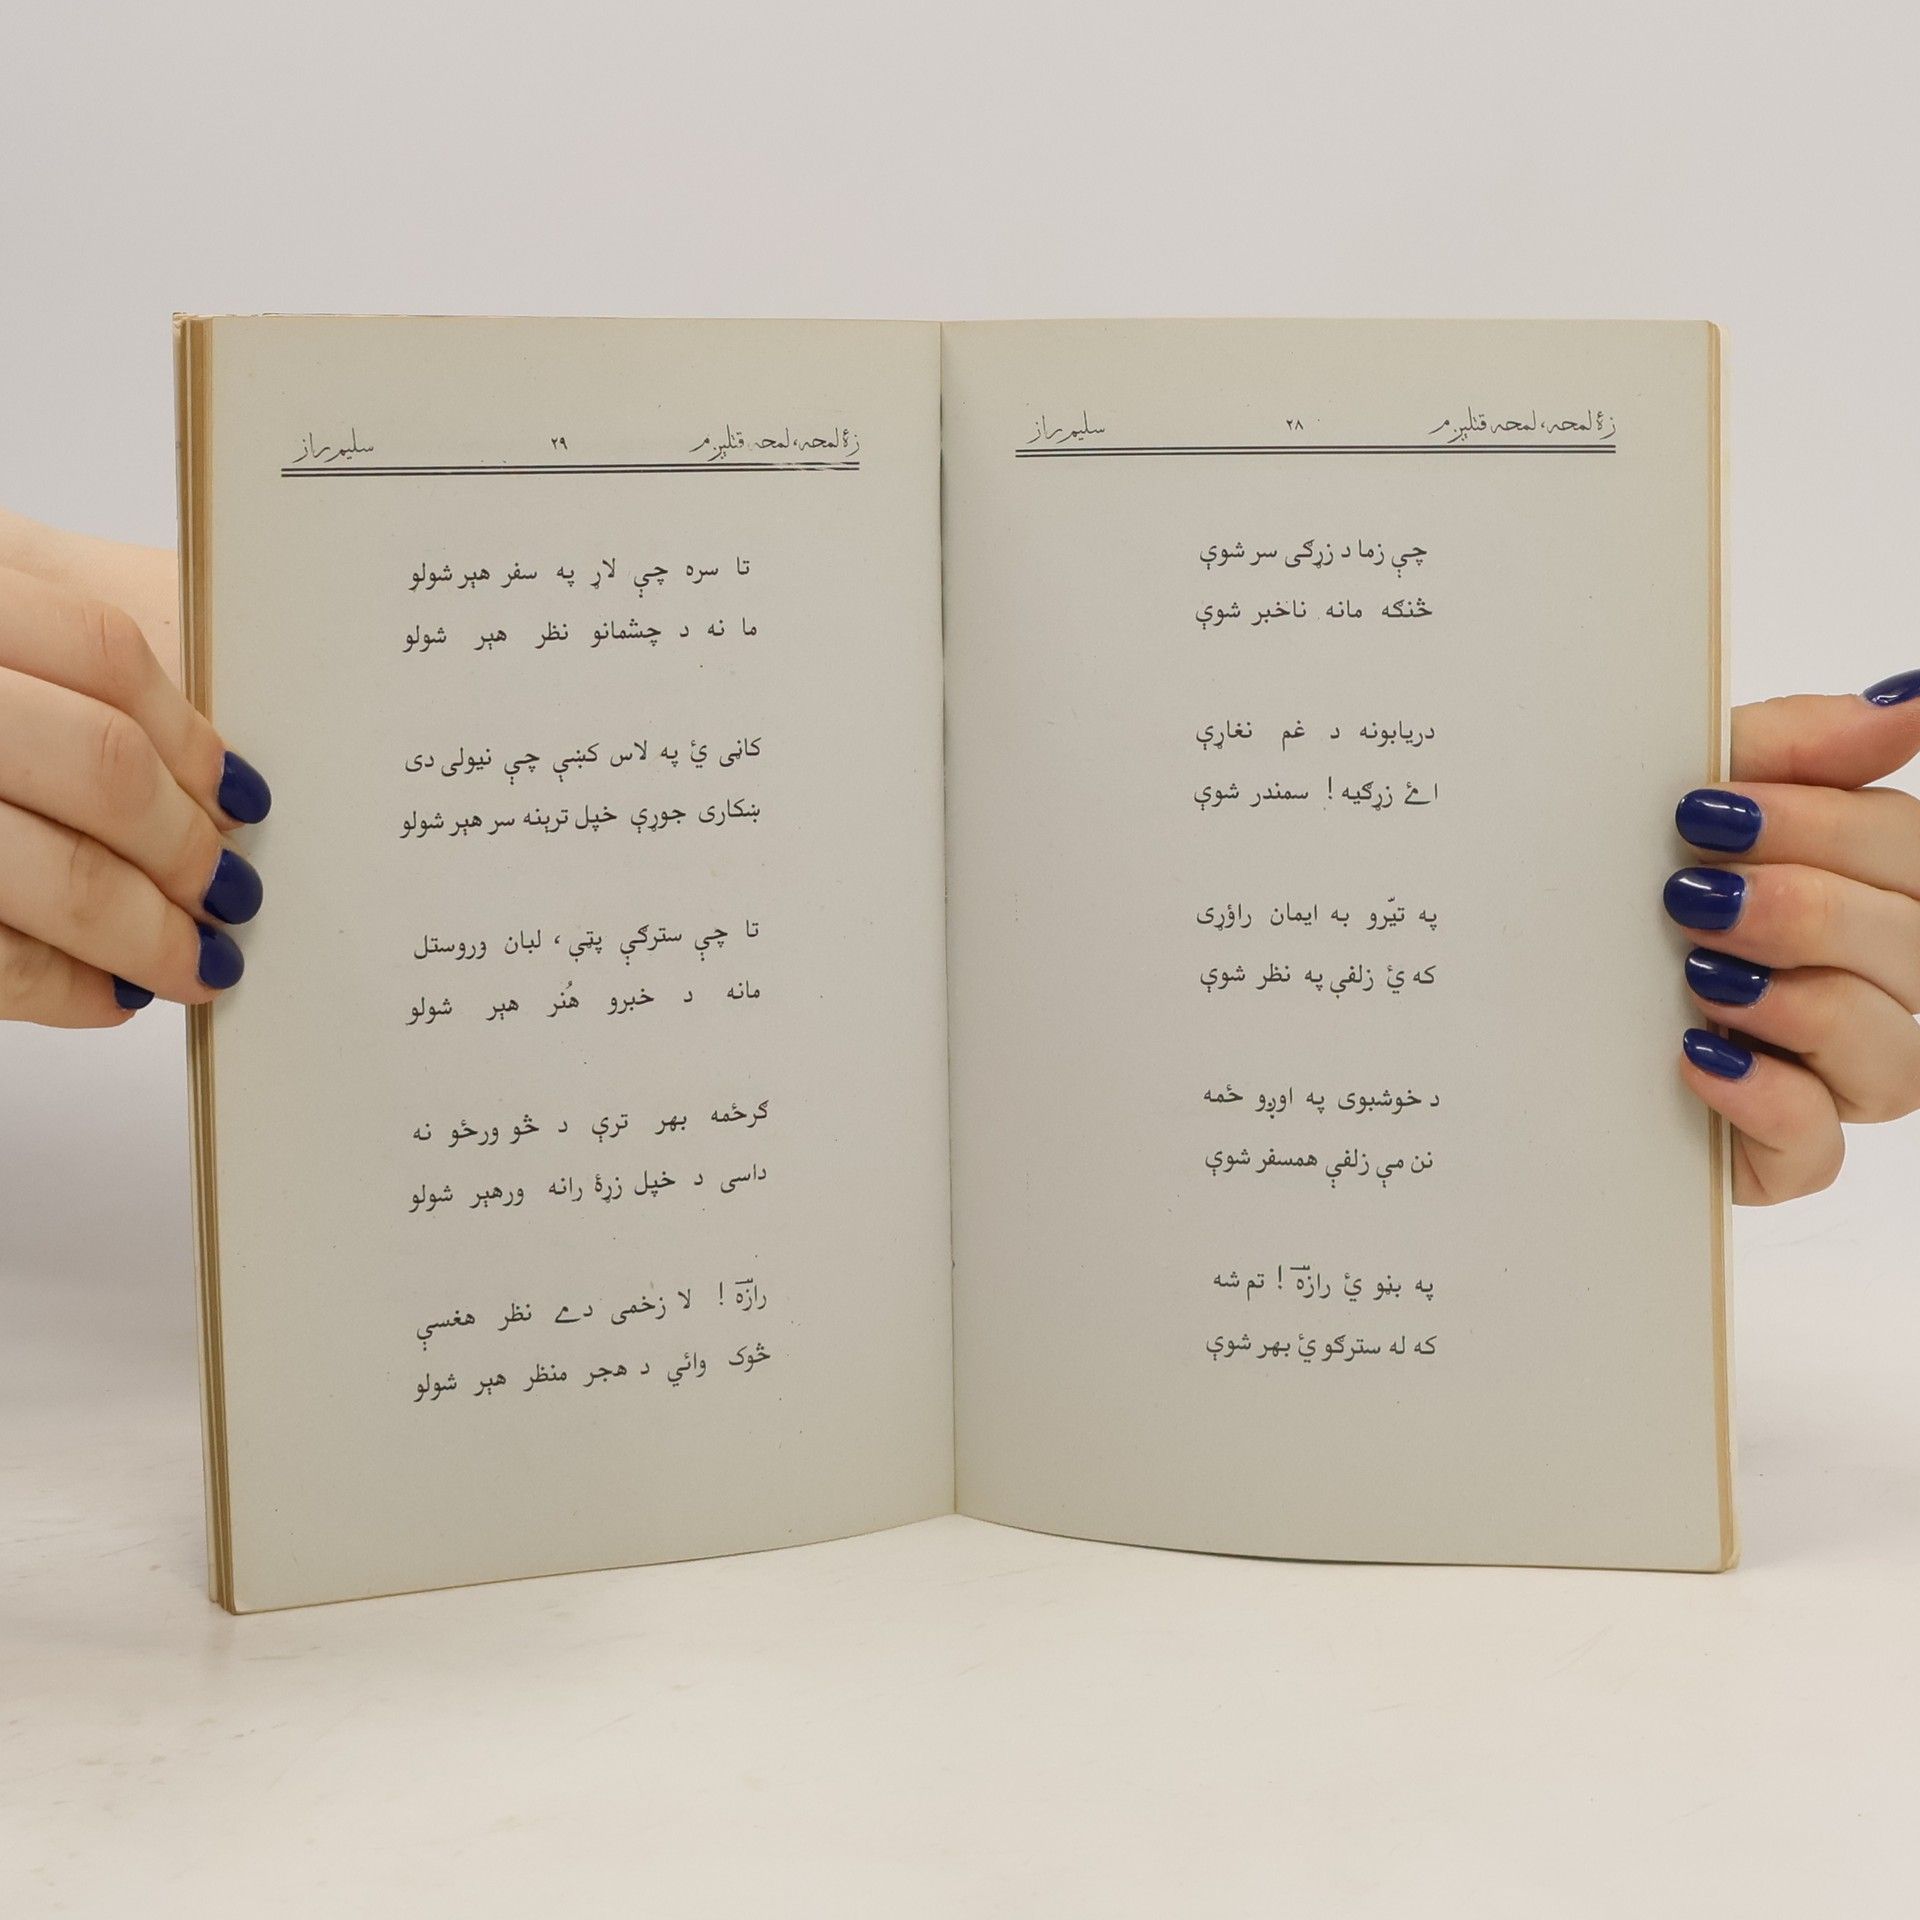 زۀ لمحه، لمحه قتلېږم ۲۸ سلیم راز
چې زما د زړګی سر شوې
څنګه مانه ناخبر شوې
دریابونه د غم نغاړې
اے زړګیه ! سمندر شوې
په تیّرو به ایمان راؤړی
که ئې زلفې په نظر شوې
د خوشبوی په اوږو ځمه
نن مې زلفې همسفر شوې
په بڼو ئې رازه ! تم شه
که له سترګو ئې بهر شوې
زۀ لمحه، لمحه قتلېږم ۲۹ سلیم راز
تا سره چې لاړ په سفر هېر شولو
ما نه د چشمانو نظر هېر شولو
کاڼی ئې په لاس کښې چې نیولی دی
ښکاری جوړې خپل ترېنه سر هېر شولو
تا چې سترګې پټې، لبان وروستل
مانه د خبرو هُنر هېر شولو
ګرځمه بهر ترې د څو ورځو نه
داسی د خپل زړۀ رانه ورهېر شولو
رازه ! لا زخمی دے نظر هغسې
څوک وائي د هجر منظر هېر شولو